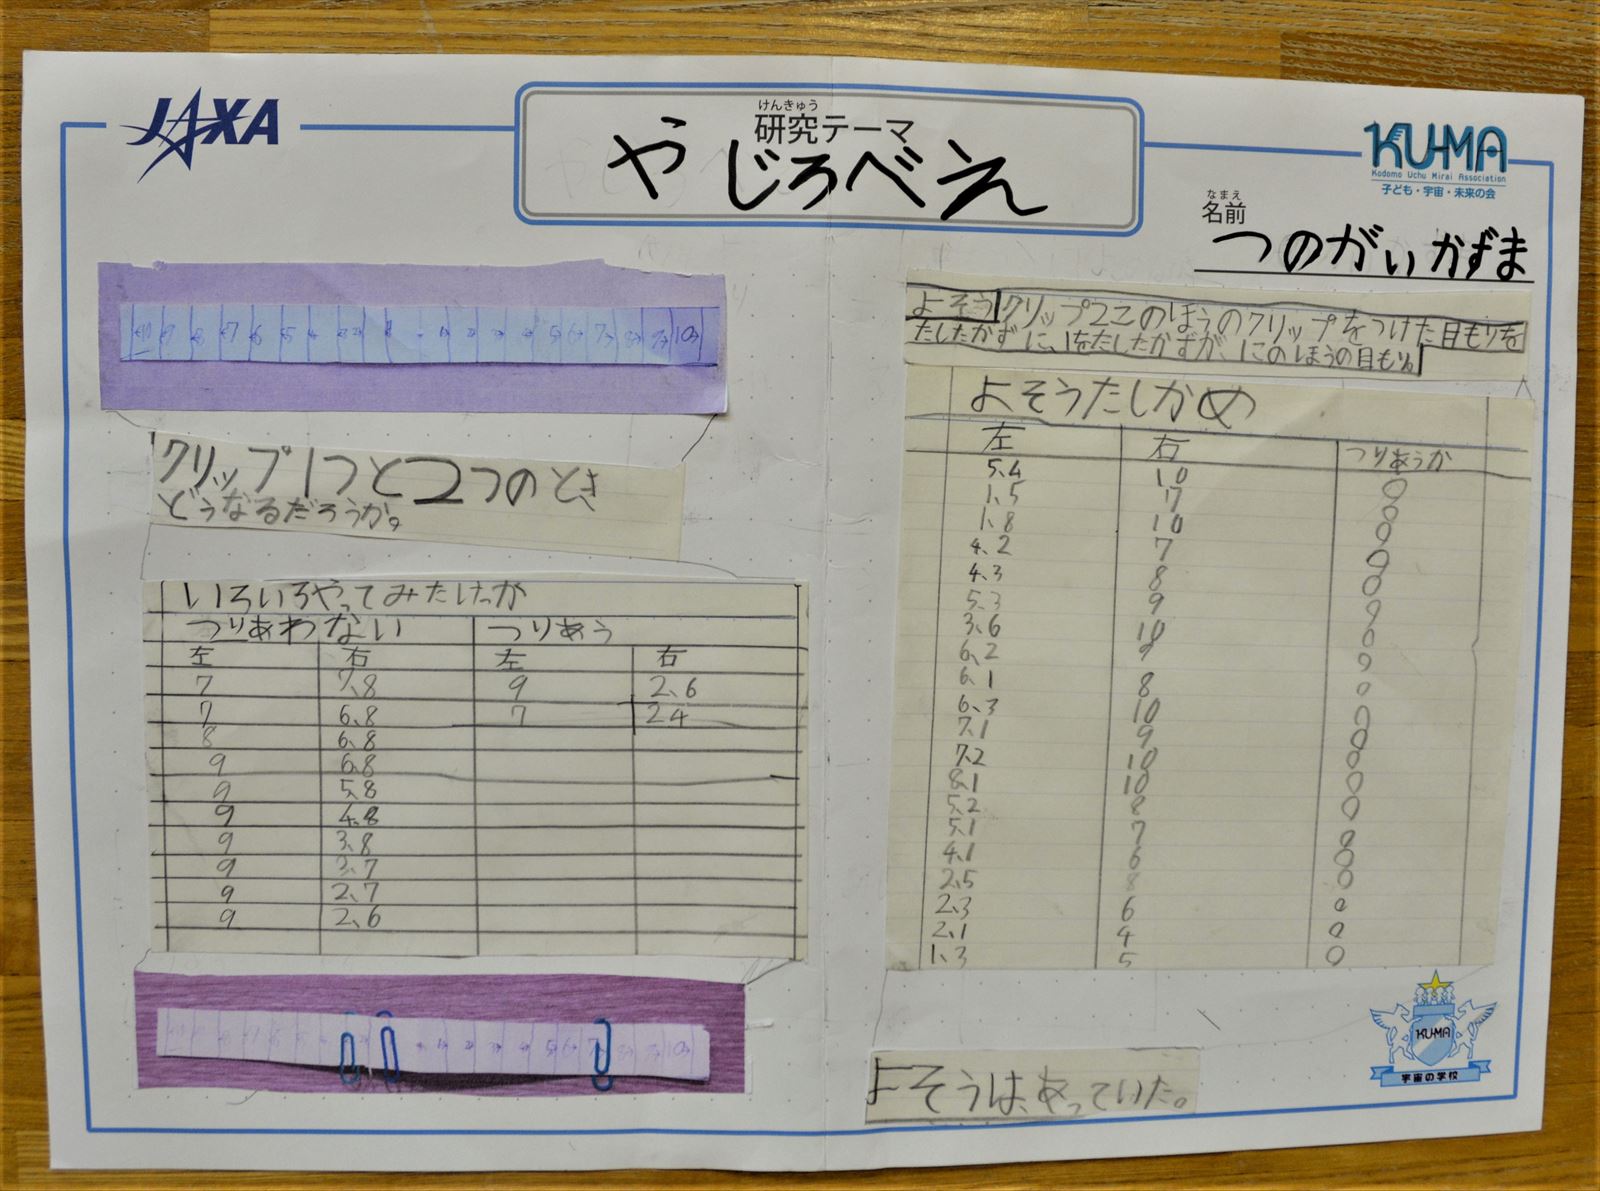 JAXA
けんきゅう
研究テーマ
やじろべえ
KU-MA
Kodomo Uchu Mirai Association
子ども・宇宙・未来の会
なまえ
名前
つのがい かずま
クリップ1つと2つのとき
どうなるだろうか。
いろいろやってみたけっか
つりあわない つりあう
左 右 左 右
7 7、8 9 2、6
7 6、8 7 2 4
8 6、8
9 6、8
9 5、8
9 4、8
9 3、8
9 3、7
9 2、7
9 2、6
よそう クリップ2このほうのクリップをつけた目もりを
たしたかずに、1をたしたかずが、1このほうの目もり。
よそうたしかめ
左 右 つりあうか
5、4 10 ○
1、5 7 ○
1、8 10 ○
4、2 7 ○
4、3 8 ○
5、3 9 ○
3、6 10 ○
6、2 9 ○
6、1 8 ○
6、3 10 ○
7、1 9 ○
7、2 10 ○
8、1 10 ○
5、2 8 ○
5、1 7 ○
4、1 6 ○
2、5 8 ○
2、3 6 ○
2、1 4 ○
1、3 5 ○
よそうは、あっていた。
KU-MA
宇宙の学校